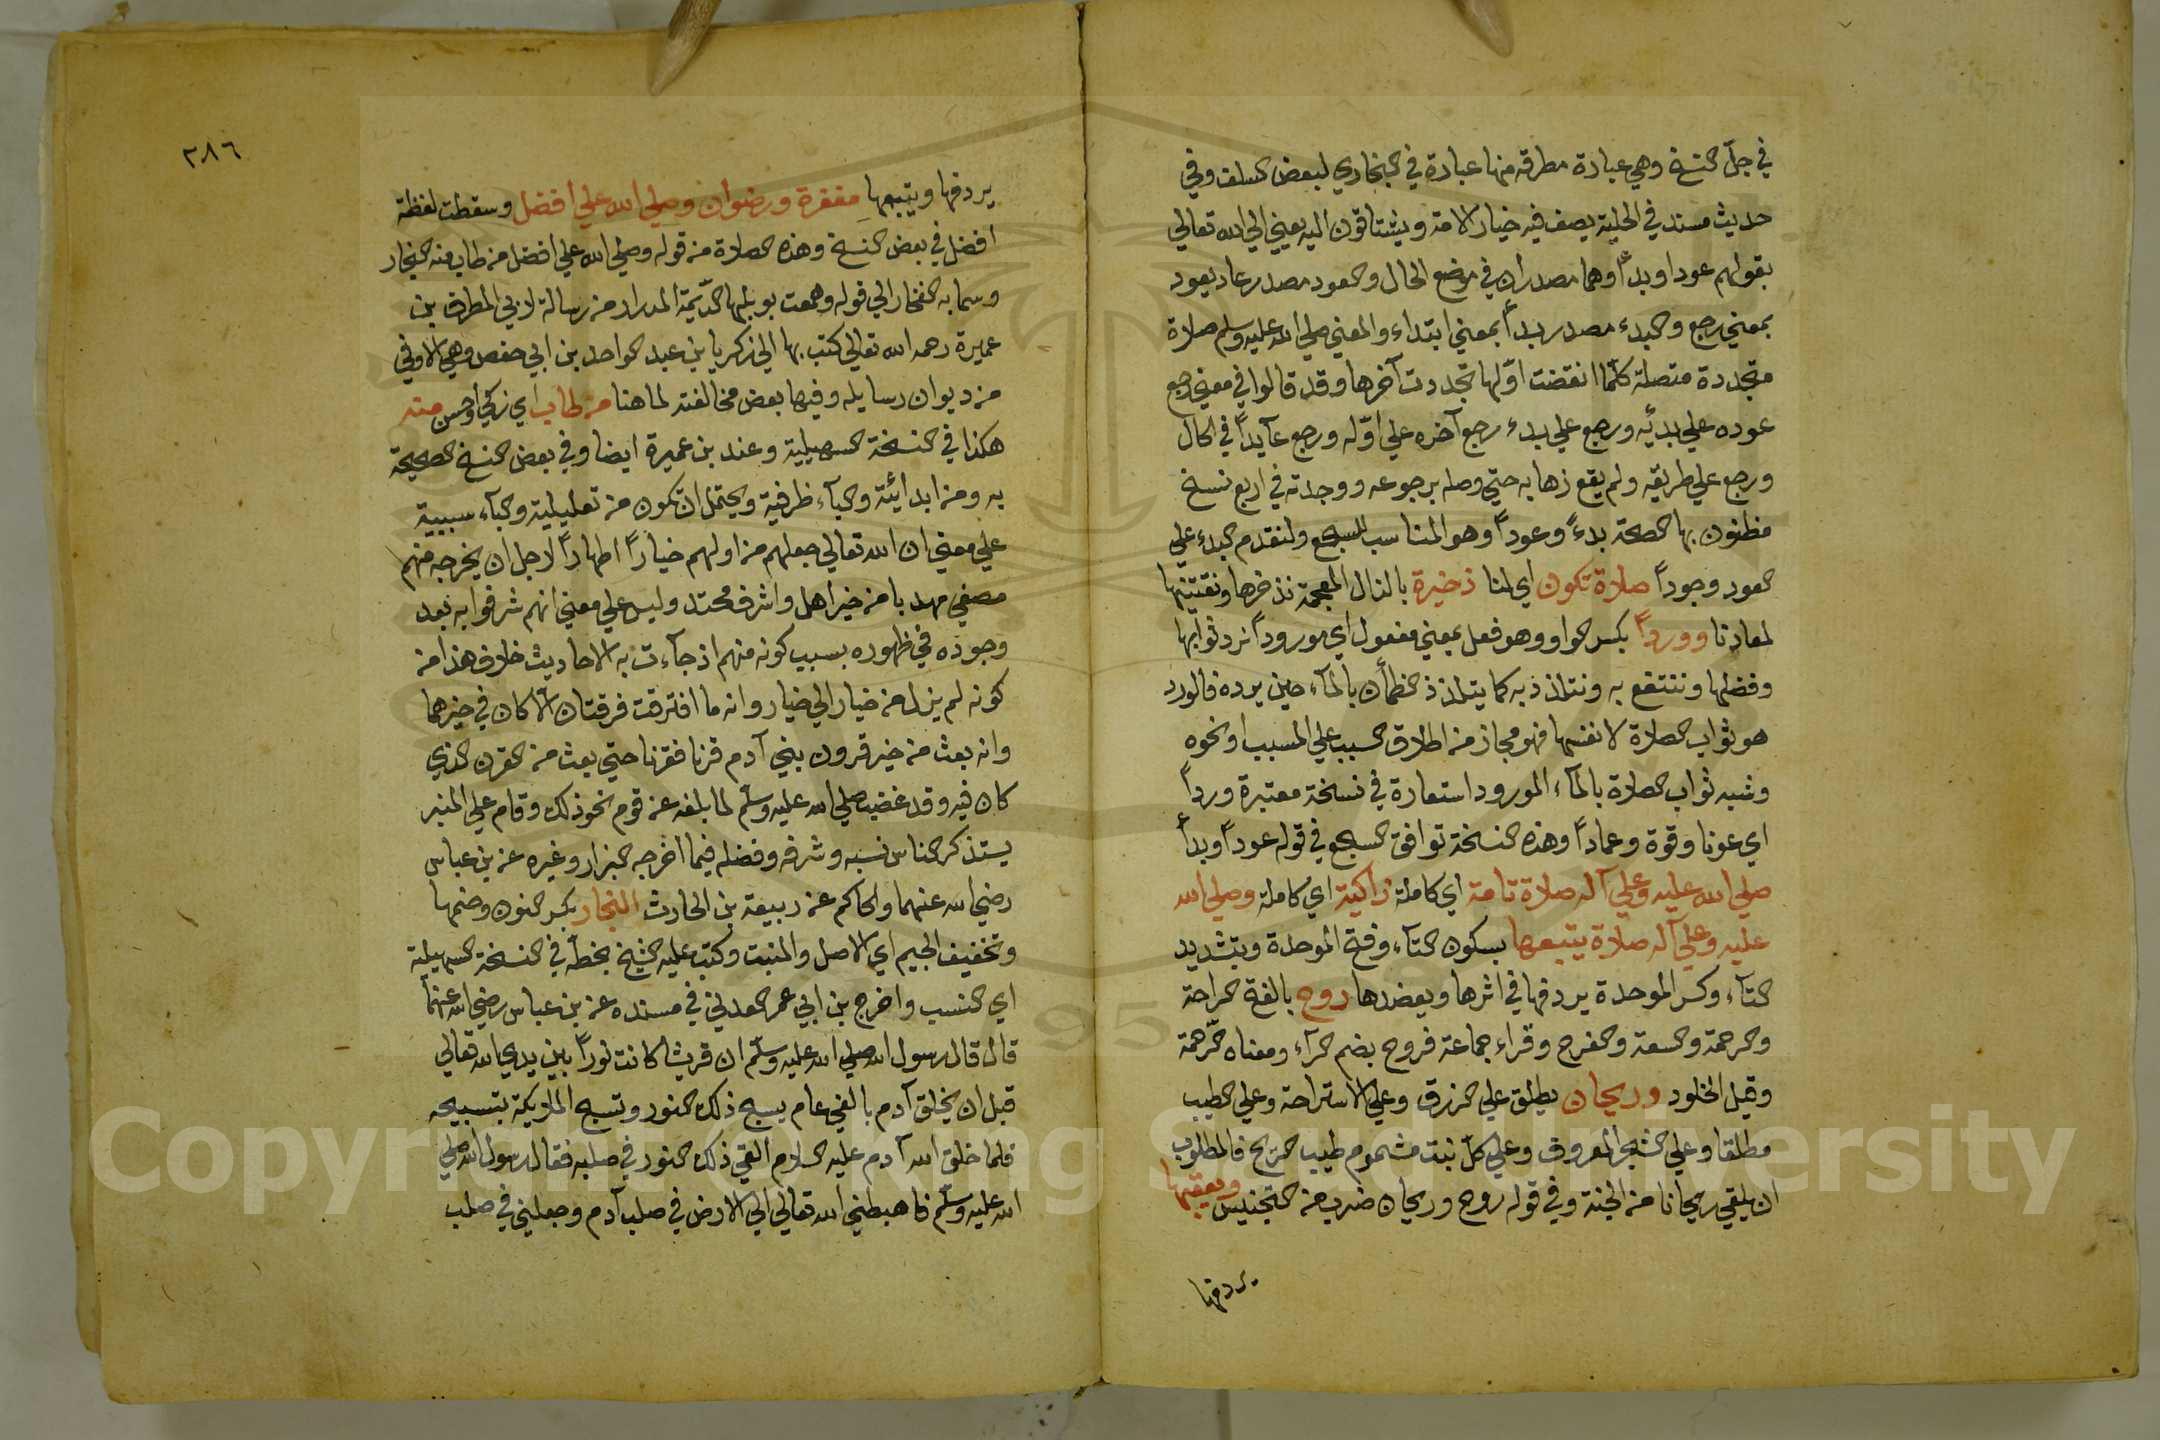 في جلّ النسخ وهي عبادة مطرقه منها عبادة في البخاري لبعض السلف وفي
حديث مسند في الحلية يصف فيه خيار الامة ويشتاقون اليه يعني الي الله تعالي
بقولهم عودا وبدأ وهما مصدران في موضع الحال والعود مصدر عاد يعود
بمعني رجع والبدء مصدر بدأ بمعني ابتداء والمعني صلي الله عليه وسلم صلاة
متجددة متصلة كلما انقضت اوّلها تجددت آخرها وقد قالوا في معني رجع
عوده علي بدئه ورجع علي بدء رجع آخره علي اوّله ورجع عآيداً في الحال
ورجع علي طريقه ولم يقع ذهابه حتي وصله برجوعه ووجدته في اربع نسخ
مظنون بها الصحة بدءً وعوداً وهو المناسب للسجع ولتقدم البدء علي
العود وجوداً صلاة تكون اي لنا ذخيرة بالذال المعجمة نذخرها ونقتنيها
لمعادنا ووردأ بكسر الواو وهو فعل بمعني مفعول اي موروداً نرد ثوابها
وفضلها وننتفع به ونتلذذ به كما يتلذذ الظمأن بالمآء حين يرده فالورد
هو ثواب الصلاة لا نفسها فهو مجاز من اطلاق السبب علي المسبب او نحوه
وشبه ثواب الصلاة بالمآء المورود استعارة في نسخة معتبرة ورداً
اي عونا وقوة وعماداً وهذه النسخة توافق السجع في قوله عوداً وبدأً
صلي الله عليه وعلي آله صلاة تامة اي كاملة زاكية اي كاملة وصلي الله
عليه وعلي آله صلاة يتبعها بسكون التآء وفتح الموحدة وبتشديد
التآء وكسر الموحدة يردفها في اثرها ويعضدها روح بالفتح الراحة
والرحمة والسعة والفرج وقراء جماعة فروح بضم الرآء ومعناه الرّحمة
وقيل الخلود وريحان يطلق علي الرزق وعلي الاستراحة وعلي الطيب
مطلقا وعلي الشجر المعروف وعلي كلّ نبت مشموم طيب الريح فالمطلوب
ان يلقي ريحانا من الجنة وفي قوله روح وريحان ضرب من التجنيس ويعقبها
يردفها
٣٨٦
يردفها ويتبعها مغفرة ورضوان وصلي الله علي افضل وسقطت لفظة
افضل في بعض النسخ وهذه الصلاة من قوله وصلي الله علي افضل من طاب منه النجار
وسما به الفخار الي قوله وهمعت بوبلها الدّيمة المدرار من رسالة لابي المطرف بن
عميرة رحمه الله تعالي كتب بها الي زكريا بن عبد الواحد بن ابي حفص وهي الاوفي
من ديوان رسايله وفيها بعض مخالفته لما هنا من طاب اي زكي وحسن منه
هكذا في النسخة السهيلية وعند بن عميرة ايضا وفي بعض النسخ الصحيحة
به ومن ابدائية والبآء ظرفية ويحتمل ان تكون من تعليلية والبآء سببية
علي معني ان الله تعالي جعلهم من اولهم خياراً اطهاراً لاجل ان يخرجه منهم
مصفي مهدبا من خير اهل واشرف محتد وليس علي معني انهم شرفوا به بعد
وجوده في ظهوره بسبب كونه منهم اذ جآءت به الاحاديث خلاف هذا من
كونه لم يزل من خيار الي خيار وانه ما افترقت فرقتان الّا كان في خيرهما
وانه بعث من خير قرون بني آدم قرنا فقرنا حتي بعث من القرن الذي
كان فيه وقد غضب صلي الله عليه وسلم لما بلغه عن قوم نحو ذلك وقام علي المنبر
يستذكر الناس نسبه وشرفه وفضله فيما اخرجه البزار وغيره عن بن عباس
رضي الله عنهما والحاكم عن ربيعة بن الحارث النجار بكسر النون وضمها
وتخفيف الجيم اي الاصل والمنبت وكتب عليه الشيخ بخطّه في النسخة السهيلة
اي النسب واخرج بن ابي عمر العدني في مسنده عن بن عباس رضي الله عنهما
قال قال رسول الله صلي الله عليه وسلم ان قريشا كانت نوراً بين يدي الله تعالي
قبل ان يخلق آدم بالفي عام يسبح ذلك النور وتسبح الملايكة بتسبيحه
فلما خلق الله آدم عليه السلام القي ذلك النور في صلبه فقال رسول الله صلي
الله عليه وسلم فاهبطني الله تعالي الي الارض في صلب آدم وجعلني في صلب
Copyright © King Saud University